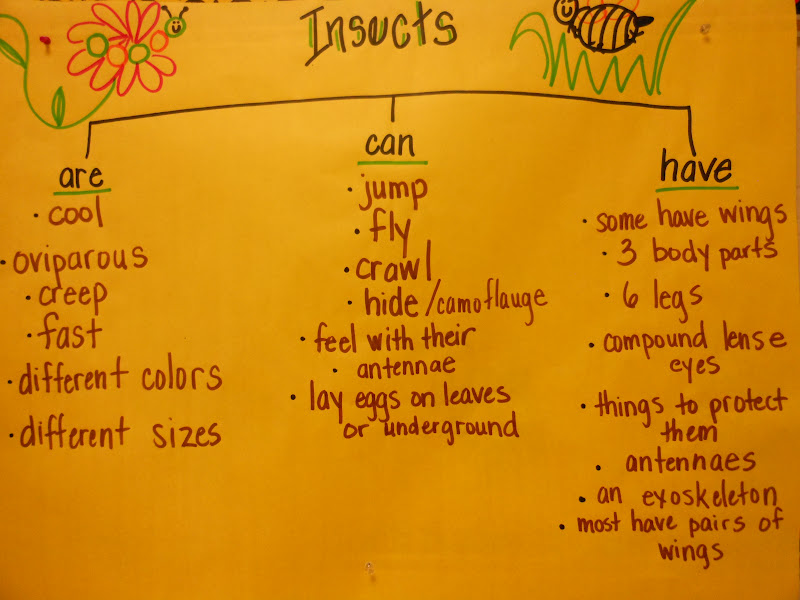 Insects
are
· cool
· oviparous
· creep
· fast
· different colors
· different sizes
can
· jump
· fly
· crawl
· hide/camoflauge
· feel with their
· antennae
· lay eggs on leaves
or underground
have
· some have wings
· 3 body parts
· 6 legs
· compound lense
eyes
· things to protect
them
· antennaes
· an exoskeleton
· most have pairs of
wings